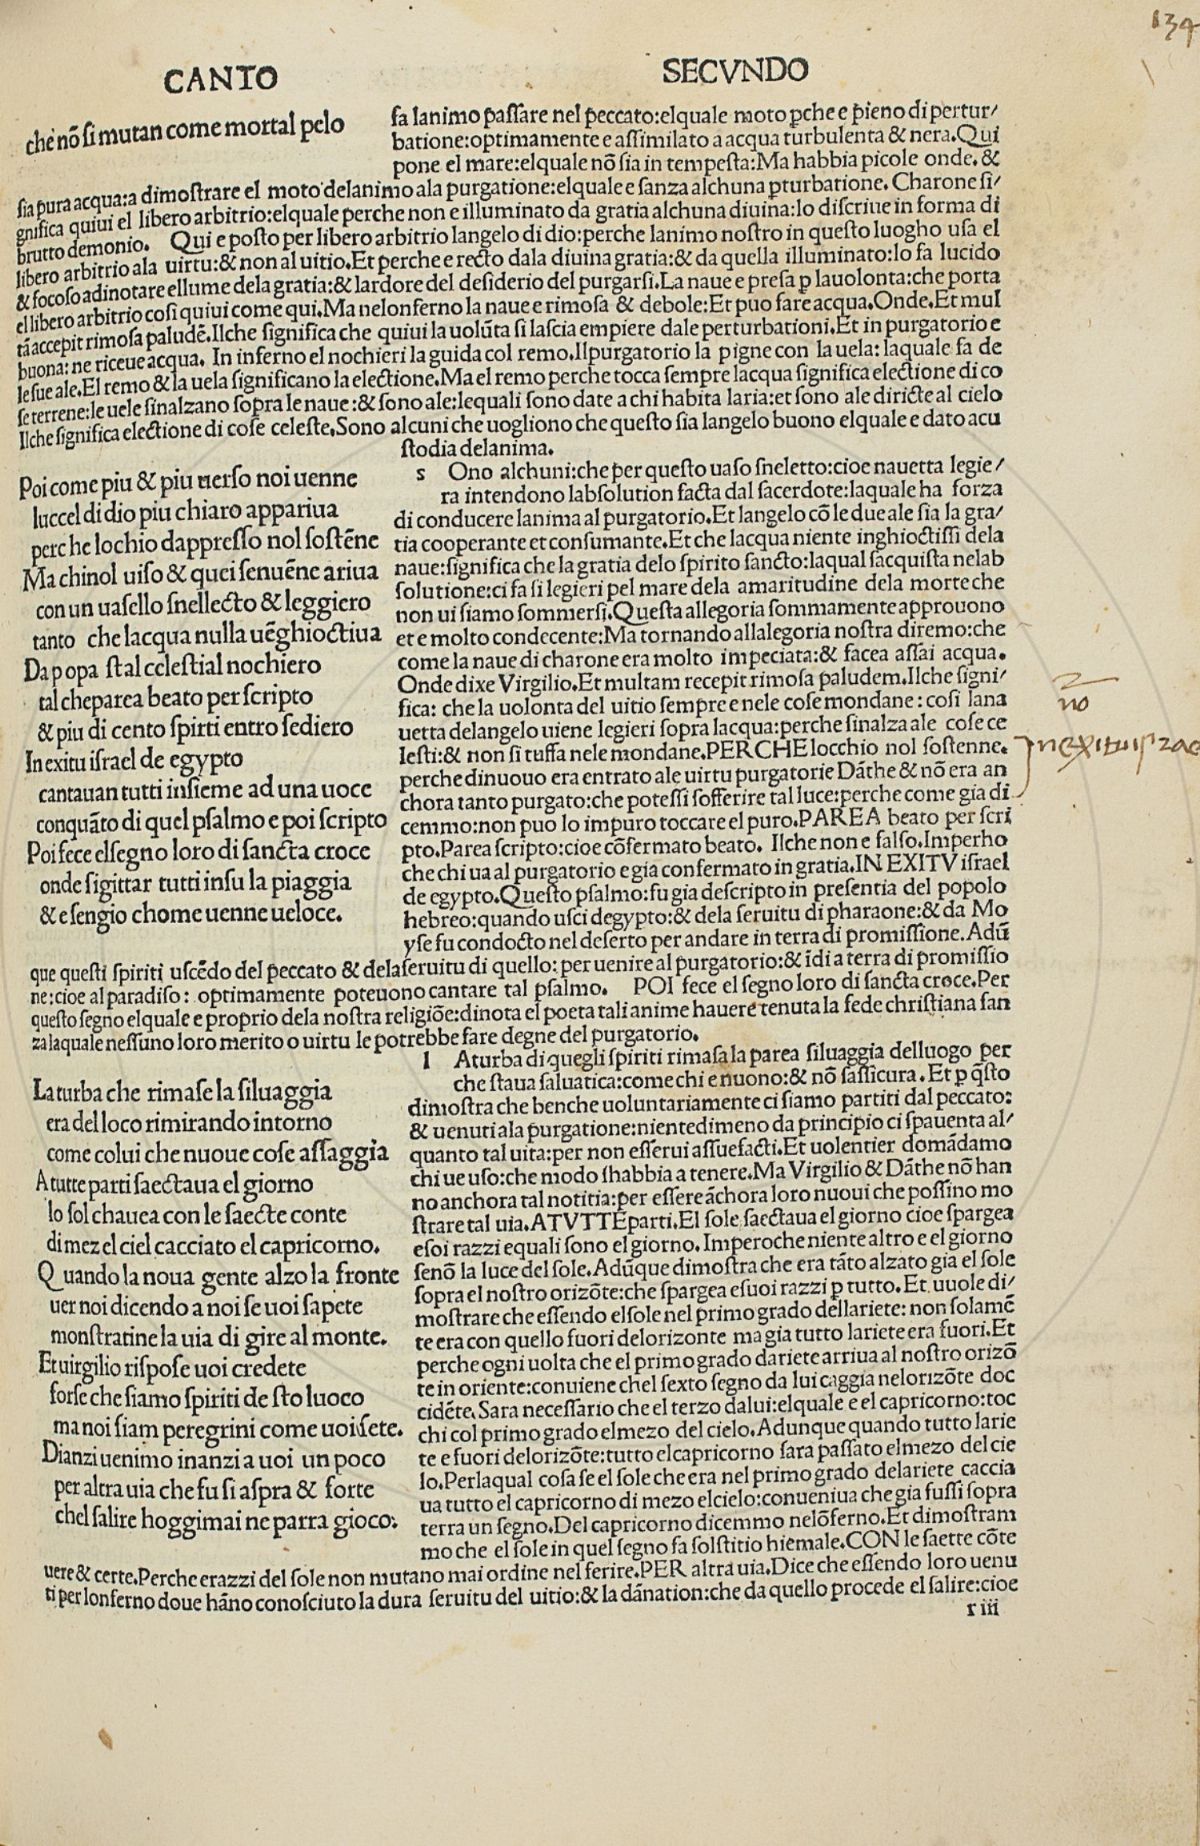 134
CANTO SECVNDO
che nõ si mutan come mortal pelo
sa lanimo passare nel peccato:elquale moto pche e pieno di pertur/
batione:optimamente e assimilato a acqua turbulenta & nera.Qui
pone el mare:elquale nõ sia in tempesta:Ma habbia picole onde. &
sia pura acqua:a dimostrare el moto delanimo ala purgatione:elquale e sanza alchuna pturbatione. Charone si/
gnifica quiui el libero arbitrio:elquale perche non e illuminato da gratia alchuna diuina:lo discriue in forma di
brutto demonio. Qui e posto per libero arbitrio langelo di dio:perche lanimo nostro in questo luogho usa el
libero arbitrio ala uirtu:& non al uitio.Et perche e recto dala diuina gratia:& da quella illuminato:lo fa lucido
& focoso adinotare ellume dela gratia:& lardore del desiderio del purgarsi.La naue e presa p la uolonta:che porta
el libero arbitrio cosi quiui come qui.Ma nelonferno la naue e rimosa & debole:Et puo fare acqua.Onde.Et mul
tã accepit rimosa paludẽ.Ilche significa che quiui la uolũta si lascia empiere dale perturbationi.Et in purgatorio e
buona: ne riceue acqua. In inferno el nochieri la guida col remo.Ilpurgatorio la pigne con la uela: laquale fa de
le sue ale.El remo & la uela significano la electione.Ma el remo perche tocca sempre lacqua significa electione di co
se terrene:le uele sinalzano sopra le naue:& sono ale:lequali sono date a chi habita laria:et sono ale diricte al cielo
Ilche significa electione di cose celeste.Sono alcuni che uogliono che questo sia langelo buono elquale e dato acu
stodia delanima.
Poi come piu & piu uerso noi uenne
luccel di dio piu chiaro appariua
perche lochio dappresso nol sostẽne
Ma chinol uiso & quei senuẽne ariua
con un uasello snellecto & leggiero
tanto che lacqua nulla uẽghioctiua
Da popa stal celestial nochiero
tal cheparea beato per scripto
& piu di cento spirti entro sediero
In exitu israel de egypto
cantauan tutti insieme ad una uoce
conquãto di quel psalmo e poi scripto
Poi fece elsegno loro di sancta croce
onde sigittar tutti insu la piaggia
& e sengio chome uenne ueloce.
s Ono alchuni:che per questo uaso sneletto:cioe nauetta legie/
ra intendono labsolution facta dal sacerdote:laquale ha forza
di conducere lanima al purgatorio.Et langelo cõ le due ale sia la gra/
tia cooperante et consumante.Et che lacqua niente inghioctissi dela
naue:significa che la gratia delo spirito sancto:laqual sacquista nelab
solutione:ci fa si legieri pel mare dela amaritudine dela morte che
non ui siamo sommersi.Questa allegoria sommamente approuono
et e molto condecente:Ma tornando allalegoria nostra diremo:che
come la naue di charone era molto impeciata:& facea assai acqua.
Onde dixe Virgilio.Et multam recepit rimosa paludem.Ilche signi/
fica: che la uolonta del uitio sempre e nele cose mondane: cosi lana
uetta delangelo uiene legieri sopra lacqua:perche sinalza ale cose ce
lesti:& non si tuffa nele mondane.PERCHE locchio nol sostenne.
perche dinuouo era entrato ale uirtu purgatorie Dãthe & nõ era an
chora tanto purgato:che potessi sofferire tal luce:perche come gia di
cemmo:non puo lo impuro toccare el puro.PAREA beato per scri
pto.Parea scripto:cioe cõfermato beato. Ilche non e falso.Imperho
che chi ua al purgatorio e gia confermato in gratia.IN EXITV israel
de egypto.Questo psalmo:fu gia descripto in presentia del popolo
hebreo:quando usci degypto:& dela seruitu di pharaone:& da Mo
yse fu condocto nel deserto per andare in terra di promissione.Adũ
que questi spiriti uscẽdo del peccato & dela seruitu di quello: per uenire al purgatorio:& ĩdi a terra di promissio
ne:cioe al paradiso: optimamente poteuono cantare tal psalmo. POI fece el segno loro di sancta croce.Per
questo segno elquale e proprio dela nostra religiõe:dinota el poeta tali anime hauere tenuta la fede christiana san
za laquale nessuno loro merito o uirtu le potrebbe fare degne del purgatorio.
La turba che rimase la siluaggia
era del loco rimirando intorno
come colui che nuoue cose assaggia
A tutte parti saectaua el giorno
lo sol chauea con le saecte conte
di mez el ciel cacciato el capricorno.
Quando la noua gente alzo la fronte
uer noi dicendo a noi se uoi sapete
monstratine la uia di gire al monte.
Et uirgilio rispose uoi credete
forse che siamo spiriti de sto luoco
ma noi siam peregrini come uoi sete.
Dianzi uenimo inanzi a uoi un poco
per altra uia che fu si aspra & forte
chel salire hoggimai ne parra gioco:
l A turba di quegli spiriti rimasa la parea siluaggia delluogo per
che staua saluatica:come chi e nuono:& nõ sassicura.Et p q̃sto
dimostra che benche uoluntariamente ci siamo partiti dal peccato:
& uenuti ala purgatione:nientedimeno da principio ci spauenta al/
quanto tal uita:per non esserui assuefacti.Et uolentier domãdamo
chi ue uso:che modo shabbia a tenere.Ma Virgilio & Dãthe nõ han
no anchora tal notitia:per essere ãchora loro nuoui che possino mo
strare tal uia.ATVTTE parti.El sole saectaua el giorno cioe spargea
esoi razzi equali sono el giorno.Imperoche niente altro e el giorno
senõ la luce del sole.Adũque dimostra che era tãto alzato gia el sole
sopra el nostro orizõte:che spargea esuoi razzi p tutto.Et uuole di/
mostrare che essendo elsole nel primo grado dellariete: non solamẽ
te era con quello fuori delorizonte ma gia tutto lariete era fuori.Et
perche ogni uolta che el primo grado dariete arriua al nostro orizõ
te in oriente:conuiene chel sexto segno da lui caggia nelorizõte doc
cidẽte.Sara necessario che el terzo dalui:elquale e el capricorno:toc
chi col primo grado elmezo del cielo.Adunque quando tutto larie
te e fuori delorizõte:tutto elcapricorno sara passato elmezo del cie
lo.Perlaqual cosa se el sole che era nel primo grado delariete caccia
ua tutto el capricorno di mezo elcielo:conueniua che gia fussi sopra
terra un segno.Del capricorno dicemmo nelõferno.Et dimostram
mo che el sole in quel segno fa solstitio hiemale.CON le saette cõte
uere & certe.Perche e razzi del sole non mutano mai ordine nel ferire.PER altra uia.Dice che essendo loro uenu
ti per lonferno doue hãno conosciuto la dura seruitu del uitio:& la dãnation:che da quello procede el salire:cioe
r iii